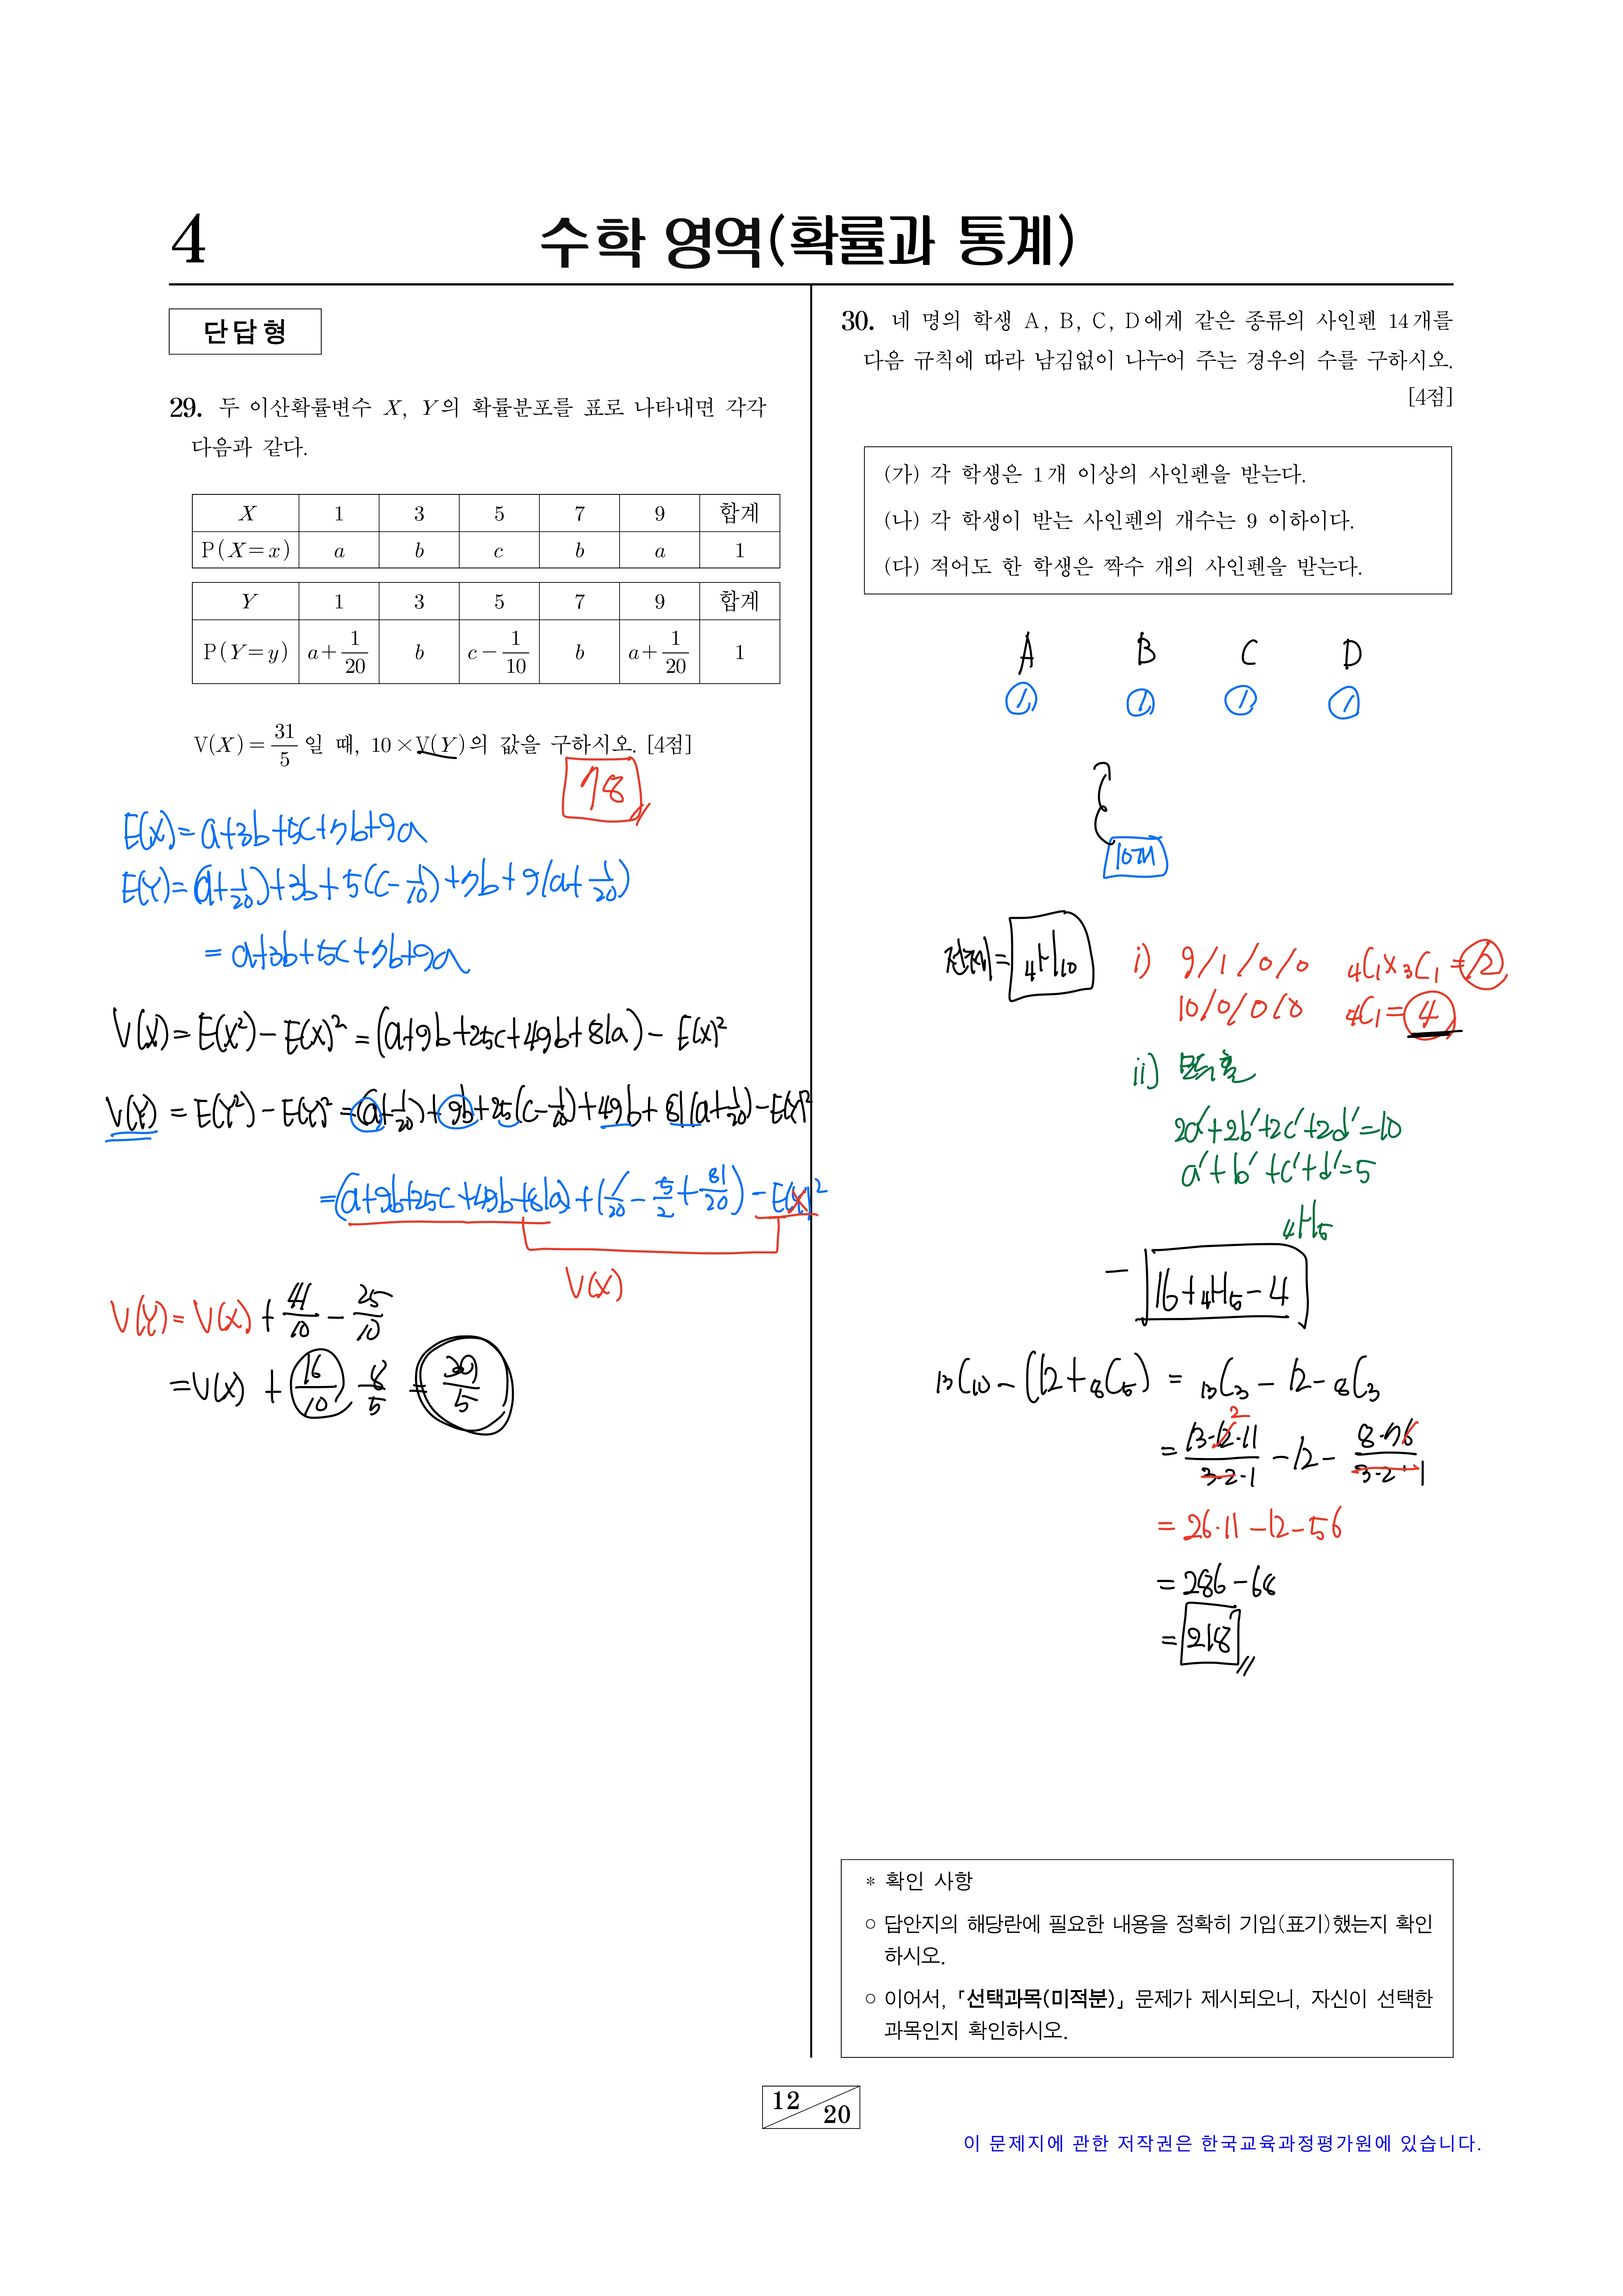 4
수학 영역(확률과 통계)
단답형
29. 두 이산확률변수 X, Y의 확률분포를 표로 나타내면 각각
다음과 같다.
X 1 3 5 7 9 합계
P(X=x) a b c b a 1
Y 1 3 5 7 9 합계
P(Y=y) a+1/20 b c-1/10 b a+1/20 1
V(X)=31/5일 때, 10×V(Y)의 값을 구하시오. [4점]
78
E(X)=a+3b+5c+7b+9a
E(Y)=(a+1/20)+3b+5(c-1/10)+7b+9(a+1/20)
=a+3b+5c+7b+9a
V(X)=E(X²)-E(X)²=(a+9b+25c+49b+81a)-E(X)²
V(Y)=E(Y²)-E(Y)²=(a+1/20)+9b+25(c-1/10)+49b+81(a+1/20)-E(Y)²
=(a+9b+25c+49b+81a)+(1/20-5/2+81/20)-E(X)²
V(X)
V(Y)=V(X)+41/10-25/10
=V(X)+16/10 8/5 =39/5
30. 네 명의 학생 A, B, C, D에게 같은 종류의 사인펜 14개를
다음 규칙에 따라 남김없이 나누어 주는 경우의 수를 구하시오.
[4점]
(가) 각 학생은 1개 이상의 사인펜을 받는다.
(나) 각 학생이 받는 사인펜의 개수는 9 이하이다.
(다) 적어도 한 학생은 짝수 개의 사인펜을 받는다.
A B C D
1 1 1 1
10개
전체=₄H₁₀
i) 9/1/0/0 ₄C₁×₃C₁=12
10/0/0/0 ₄C₁=4
ii) 모두홀
2a'+2b'+2c'+2d'=10
a'+b'+c'+d'=5
₄H₅
- 16+₄H₅-4
₁₃C₁₀-(12+₈C₅)=₁₃C₃-12-₈C₃
=13·12·11/3·2·1-12-8·7·6/3·2·1
2
=26·11-12-56
=286-68
=218
* 확인 사항
○ 답안지의 해당란에 필요한 내용을 정확히 기입(표기)했는지 확인
하시오.
○ 이어서, 「선택과목(미적분)」 문제가 제시되오니, 자신이 선택한
과목인지 확인하시오.
12
20
이 문제지에 관한 저작권은 한국교육과정평가원에 있습니다.